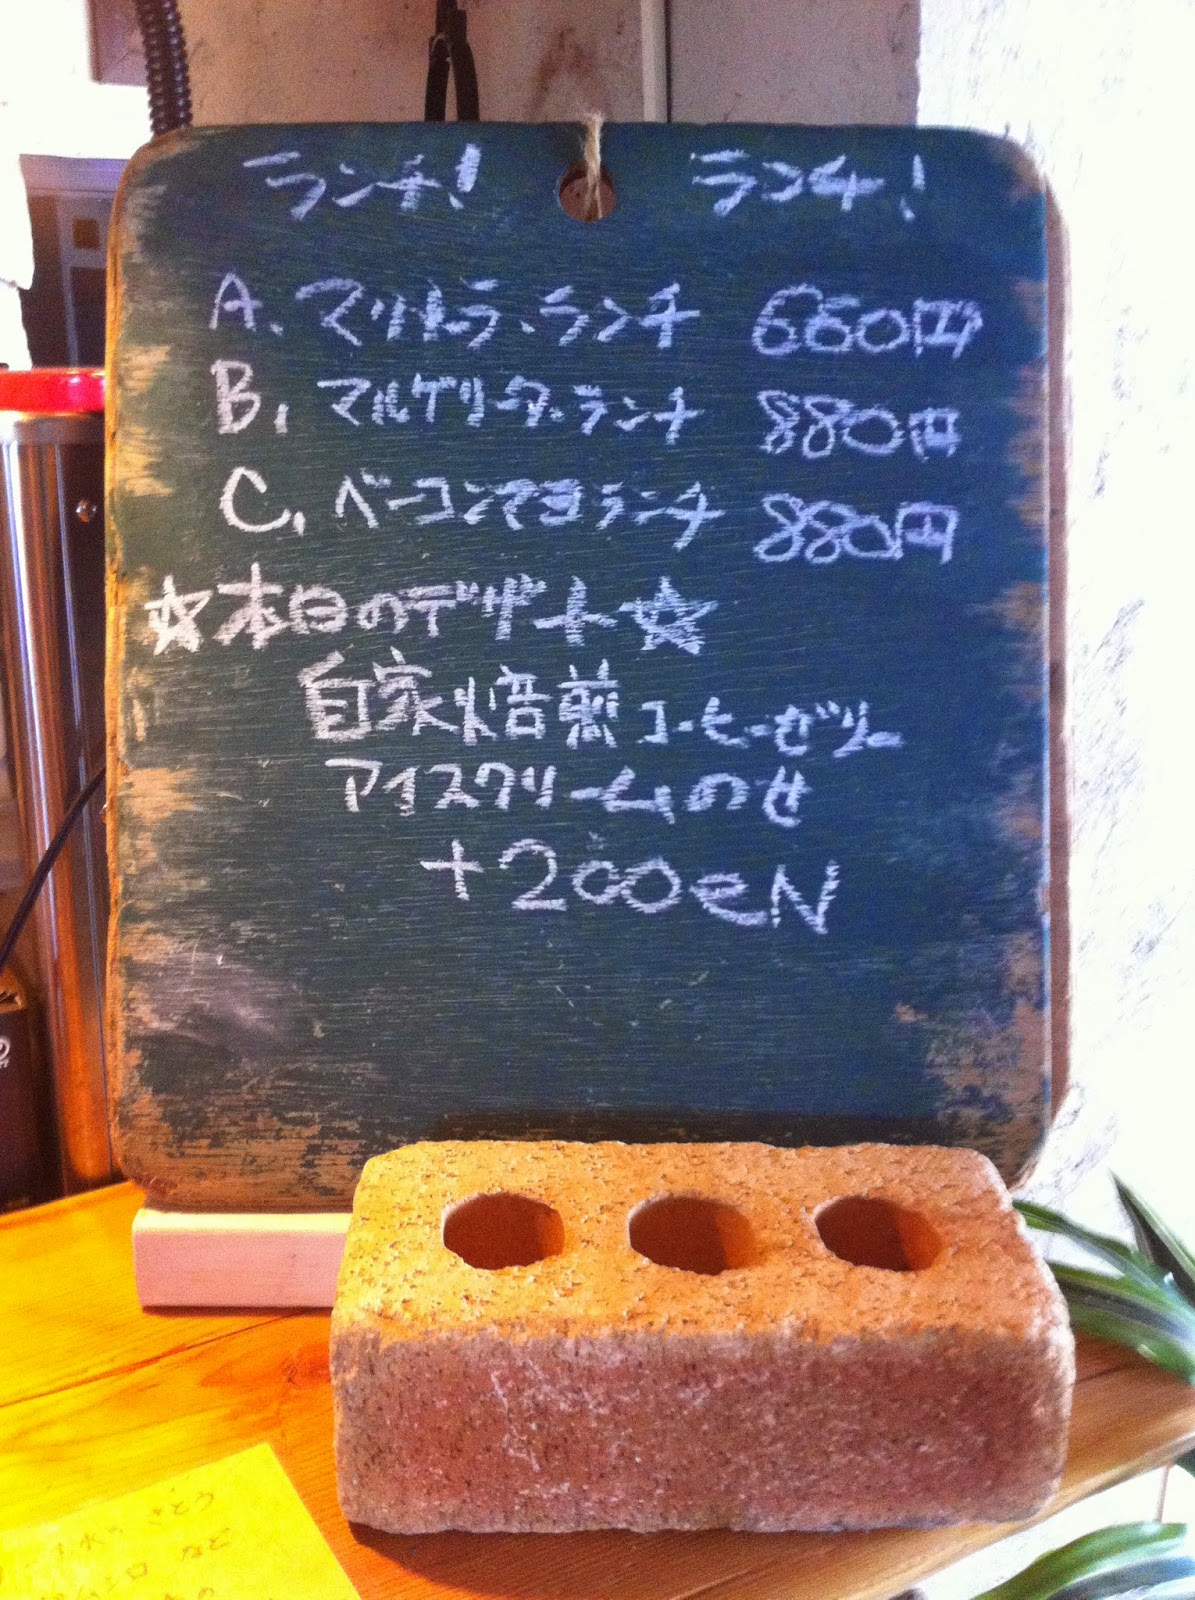 ランチ! ランチ!
A. マリナーラ・ランチ 660円
B. マルゲリータ・ランチ 880円
C. ベーコンマヨランチ 880円
☆本日のデザート☆
自家焙煎コーヒーゼリー
アイスクリームのせ
+200eN
さとう
など